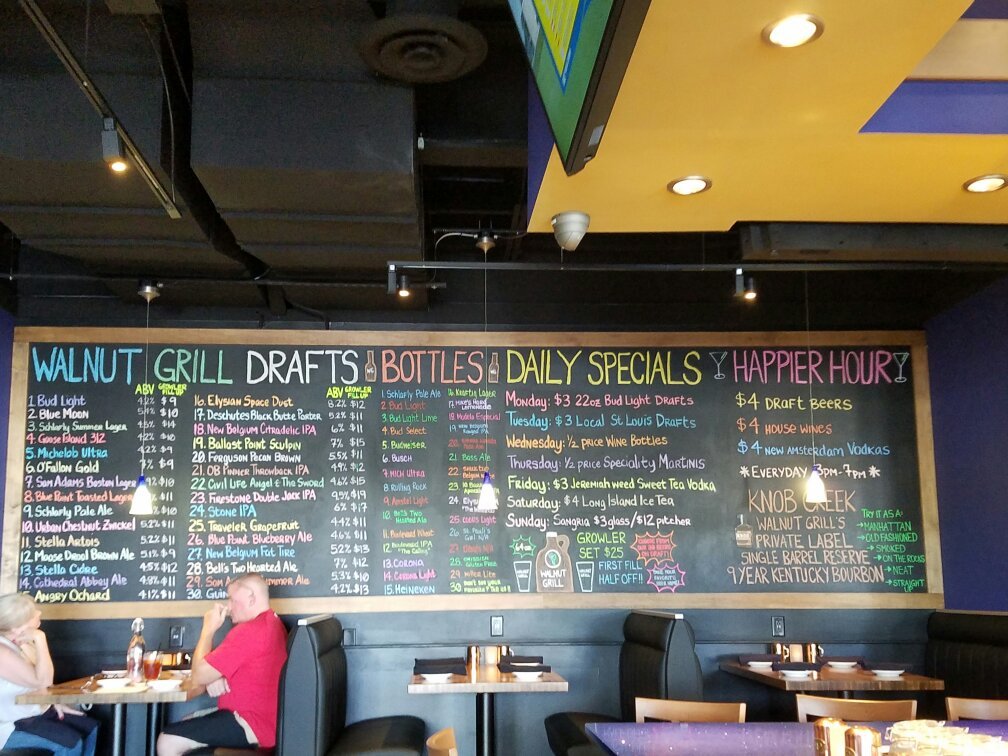 WALNUT GRILL DRAFTS
ABV GROWLER FILL UP
1. Bud Light 4.2% $9
2. Blue Moon 5.4% $10
3. Schlafly Summer Lager 4.5% $14
4. Goose Island 312 4.2% $10
5. Michelob Ultra
6. O'Fallon Gold $9
7. Sam Adams Boston Lager $10
8. Blue Point Toasted Lager
9. Schlafly Pale Ale $10
10. Urban Chestnut Zwickel 5.2% $11
11. Stella Artois 5.2% $11
12. Moose Drool Brown Ale 5.1% $9
13. Stella Cidre 4.5% $13
14. Cathedral Abbey Ale 4.8% $11
15. Angry Ochard 4.1% $11
ABV GROWLER FILL UP
16. Elysian Space Dust 8.2% $12
17. Deschutes Black Butte Porter 5.2% $11
18. New Belgium Citradelic IPA 6% $11
19. Ballast Point Sculpin 7% $15
20. Ferguson Pecan Brown 5.5% $11
21. OB Pinner Throwback IPA 4.9% $12
22. Civil Life Angel & The Sword 4.6% $15
23. Firestone Double Jack IPA 9.5% $19
24. Stone IPA 6% $17
25. Traveler Grapefruit 4.4% $11
26. Blue Point Blueberry Ale 4.6% $11
27. New Belgium Fat Tire 5.2% $13
28. Bell's Two Hearted Ale 7% $12
29. Sam Summer Ale 5.3% $10
30. Guin 4.2% $13
BOTTLES
1. Schlafly Pale Ale
2. Bud Light
3. Bud Light Lime
4. Bud Select
5. Budweiser
6. Busch
7. Mich Ultra
8. Rolling Rock
9. Amstel Light
10. Bell's Two Hearted Ale
11. Boulevard Wheat
12. Boulevard IPA "The Calling"
13. Corona
14. Corona Light
15. Heineken
16. Kraftig Lager
17. Mike's Hard Lemonade
18. Modelo Especial
21. Bass Ale
25. Coors Light
26. St. Pauli's Girl N/A
28. Omission Gluten Free
29. Miller Lite
DAILY SPECIALS
Monday: $3 22oz Bud Light Drafts
Tuesday: $3 Local St Louis Drafts
Wednesday: ½ price Wine Bottles
Thursday: ½ price Speciality Martinis
Friday: $3 Jeremiah weed Sweet Tea Vodka
Saturday: $4 Long Island Ice Tea
Sunday: Sangria $3 glass/$12 pitcher
64 oz
WALNUT GRILL
GROWLER
SET $25
FIRST FILL
HALF OFF!!
HAPPIER HOUR
$4 DRAFT BEERS
$4 HOUSE WINES
$4 NEW AMSTERDAM VODKAS
*EVERYDAY 3pm-7pm*
KNOB CREEK
WALNUT GRILL'S
PRIVATE LABEL
SINGLE BARREL RESERVE
9 YEAR KENTUCKY BOURBON
TRY IT AS A:
→MANHATTAN
→OLD FASHIONED
→SMOKED
→ON THE ROCKS
→NEAT
→STRAIGHT UP